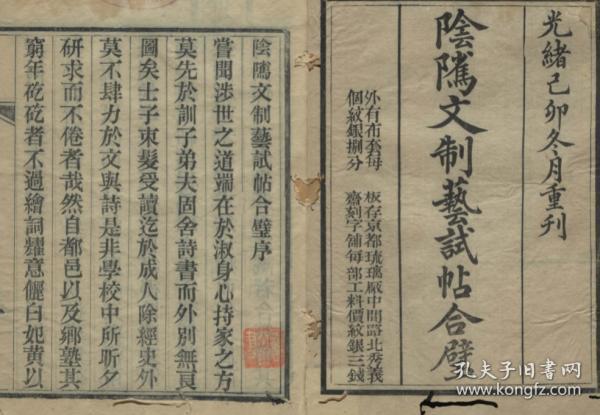 光緒己卯冬月重刊
陰隲文制藝試帖合璧
外有布套每
個紋銀捌分
板存京都琉璃廠中間路北秀義
齋刻字鋪每部工料價紋銀三錢
陰隲文制藝試帖合璧序
嘗聞涉世之道端在於淑身心持家之方
莫先於訓子弟夫固舍詩書而外別無良
圖矣士子束髮受讀迄於成人除經史外
莫不肆力於文與詩是非學校中所昕夕
研求而不倦者哉然自都邑以及鄉塾其
窮年矻矻者不過繪詞繣意儷白妃黄以
孔夫子旧书网
www.kongfz.com